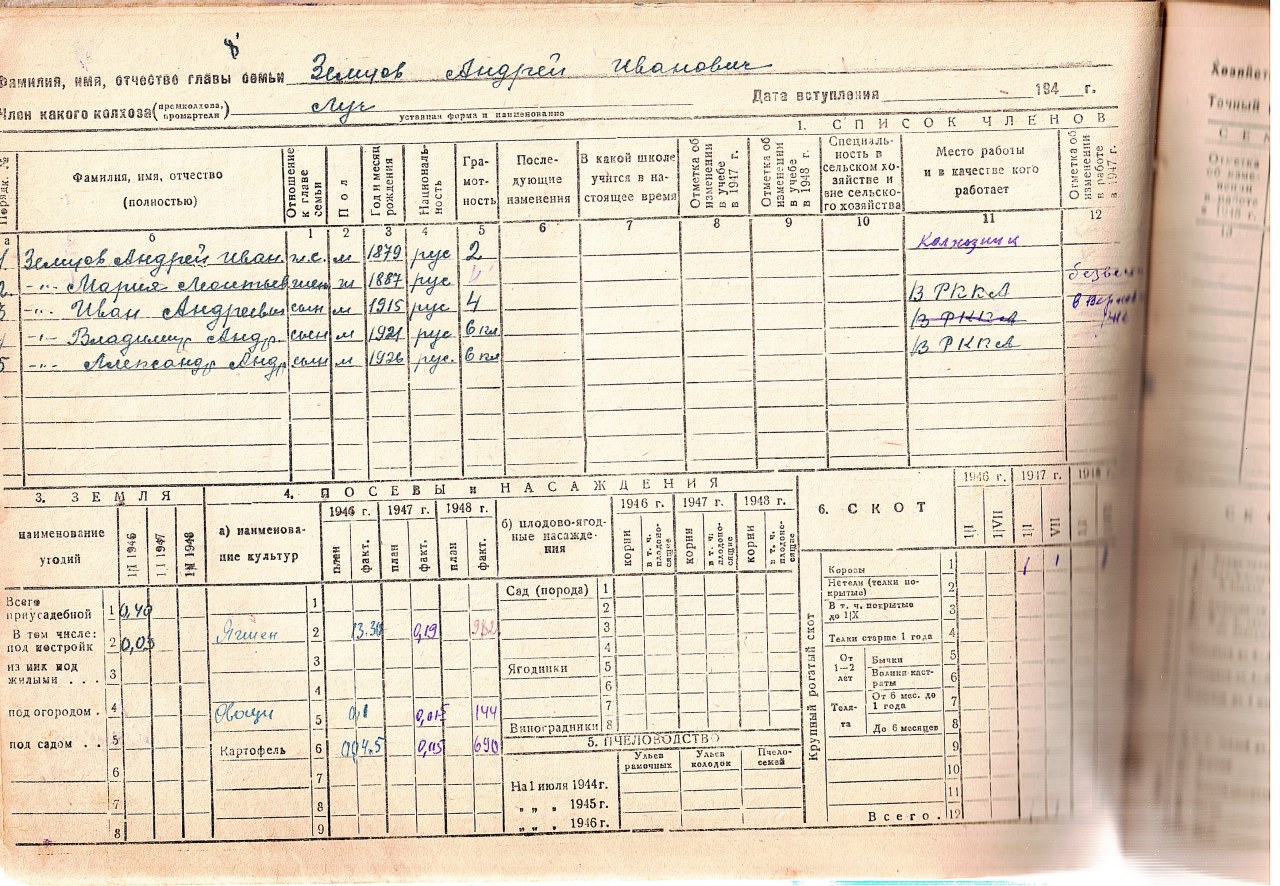 8
Фамилия, имя, отчество главы семьи Земцов Андрей Иванович
Член какого колхоза (премколхоза, промартели) Луч
уставная форма и наименование
Дата вступления 194 г.
1. СПИСОК ЧЛЕНОВ
Порядк. №
Фамилия, имя, отчество (полностью)
Отношение к главе семьи
Пол
Год и месяц рождения
Националь-ность
Гра-мот-ность
После-дующие изменения
В какой школе учится в на-стоящее время
Отметка об изменении в учебе в 1947 г.
Отметка об изменении в учебе в 1948 г.
Специаль-ность в сельском хо-зяйстве и вне сельско-го хозяйства
Место работы и в качестве кого работает
Отметка об изменении в работе в 1947 г.
а б 1 2 3 4 5 6 7 8 9 10 11 12
1. Земцов Андрей Иван. г.с. м 1879 рус 2 Колхозник
2. -"- Мария Леонтьев жен ж 1887 рус
3 -"- Иван Андреевич сын м 1915 рус 4 В РККА
4 -"- Владимир Андр. сын м 1921 рус 6 кл В РККА
5 -"- Александр Андр сын м 1926 рус. 6 кл В РККА
3. ЗЕМЛЯ
наименование угодий
1|I 1946
1|I 1947
1|I 1948
Всего приусадебной 1 0,40
В том числе: под постройк 2 0,03
из них под жилыми . . . 3
под огородом . 4
под садом . . 5
6
7
8
4. ПОСЕВЫ и НАСАЖДЕНИЯ
а) наименова-ние культур
1946 г. 1947 г. 1948 г.
план факт. план факт. план факт.
1
Ячмен 2 13.30 0,19
3
4
Овощи 5 0,1 0,015 144
Картофель 6 690
7
8
9
б) плодово-ягод-ные насажде-ния
1946 г. 1947 г. 1948 г.
корни в т. ч. плодоно-сящие корни в т. ч. плодоно-сящие корни в т. ч. плодоно-сящие
Сад (порода) 1
2
3
4
Ягодники 5
6
7
Виноградники 8
5. ПЧЕЛОВОДСТВО
Ульев рамочных
Ульев колодок
Пчело-семей
На 1 июля 1944 г.
" " " 1945 г.
" " " 1946 г.
6. СКОТ
1946 г. 1947 г. 1948
1|I 1|VII 1|I VII
Крупный рогатый скот
Коровы 1 1 1
Нетели (телки по-крытые) 2
В т. ч. покрытые до 1|X 3
Телки старше 1 года 4
От 1—2 лет
Бычки 5
Волики каст-раты 6
Теля-та
От 6 мес. до 1 года 7
До 6 месяцев 8
9
10
11
Всего. 12
Хозяйст
Точный